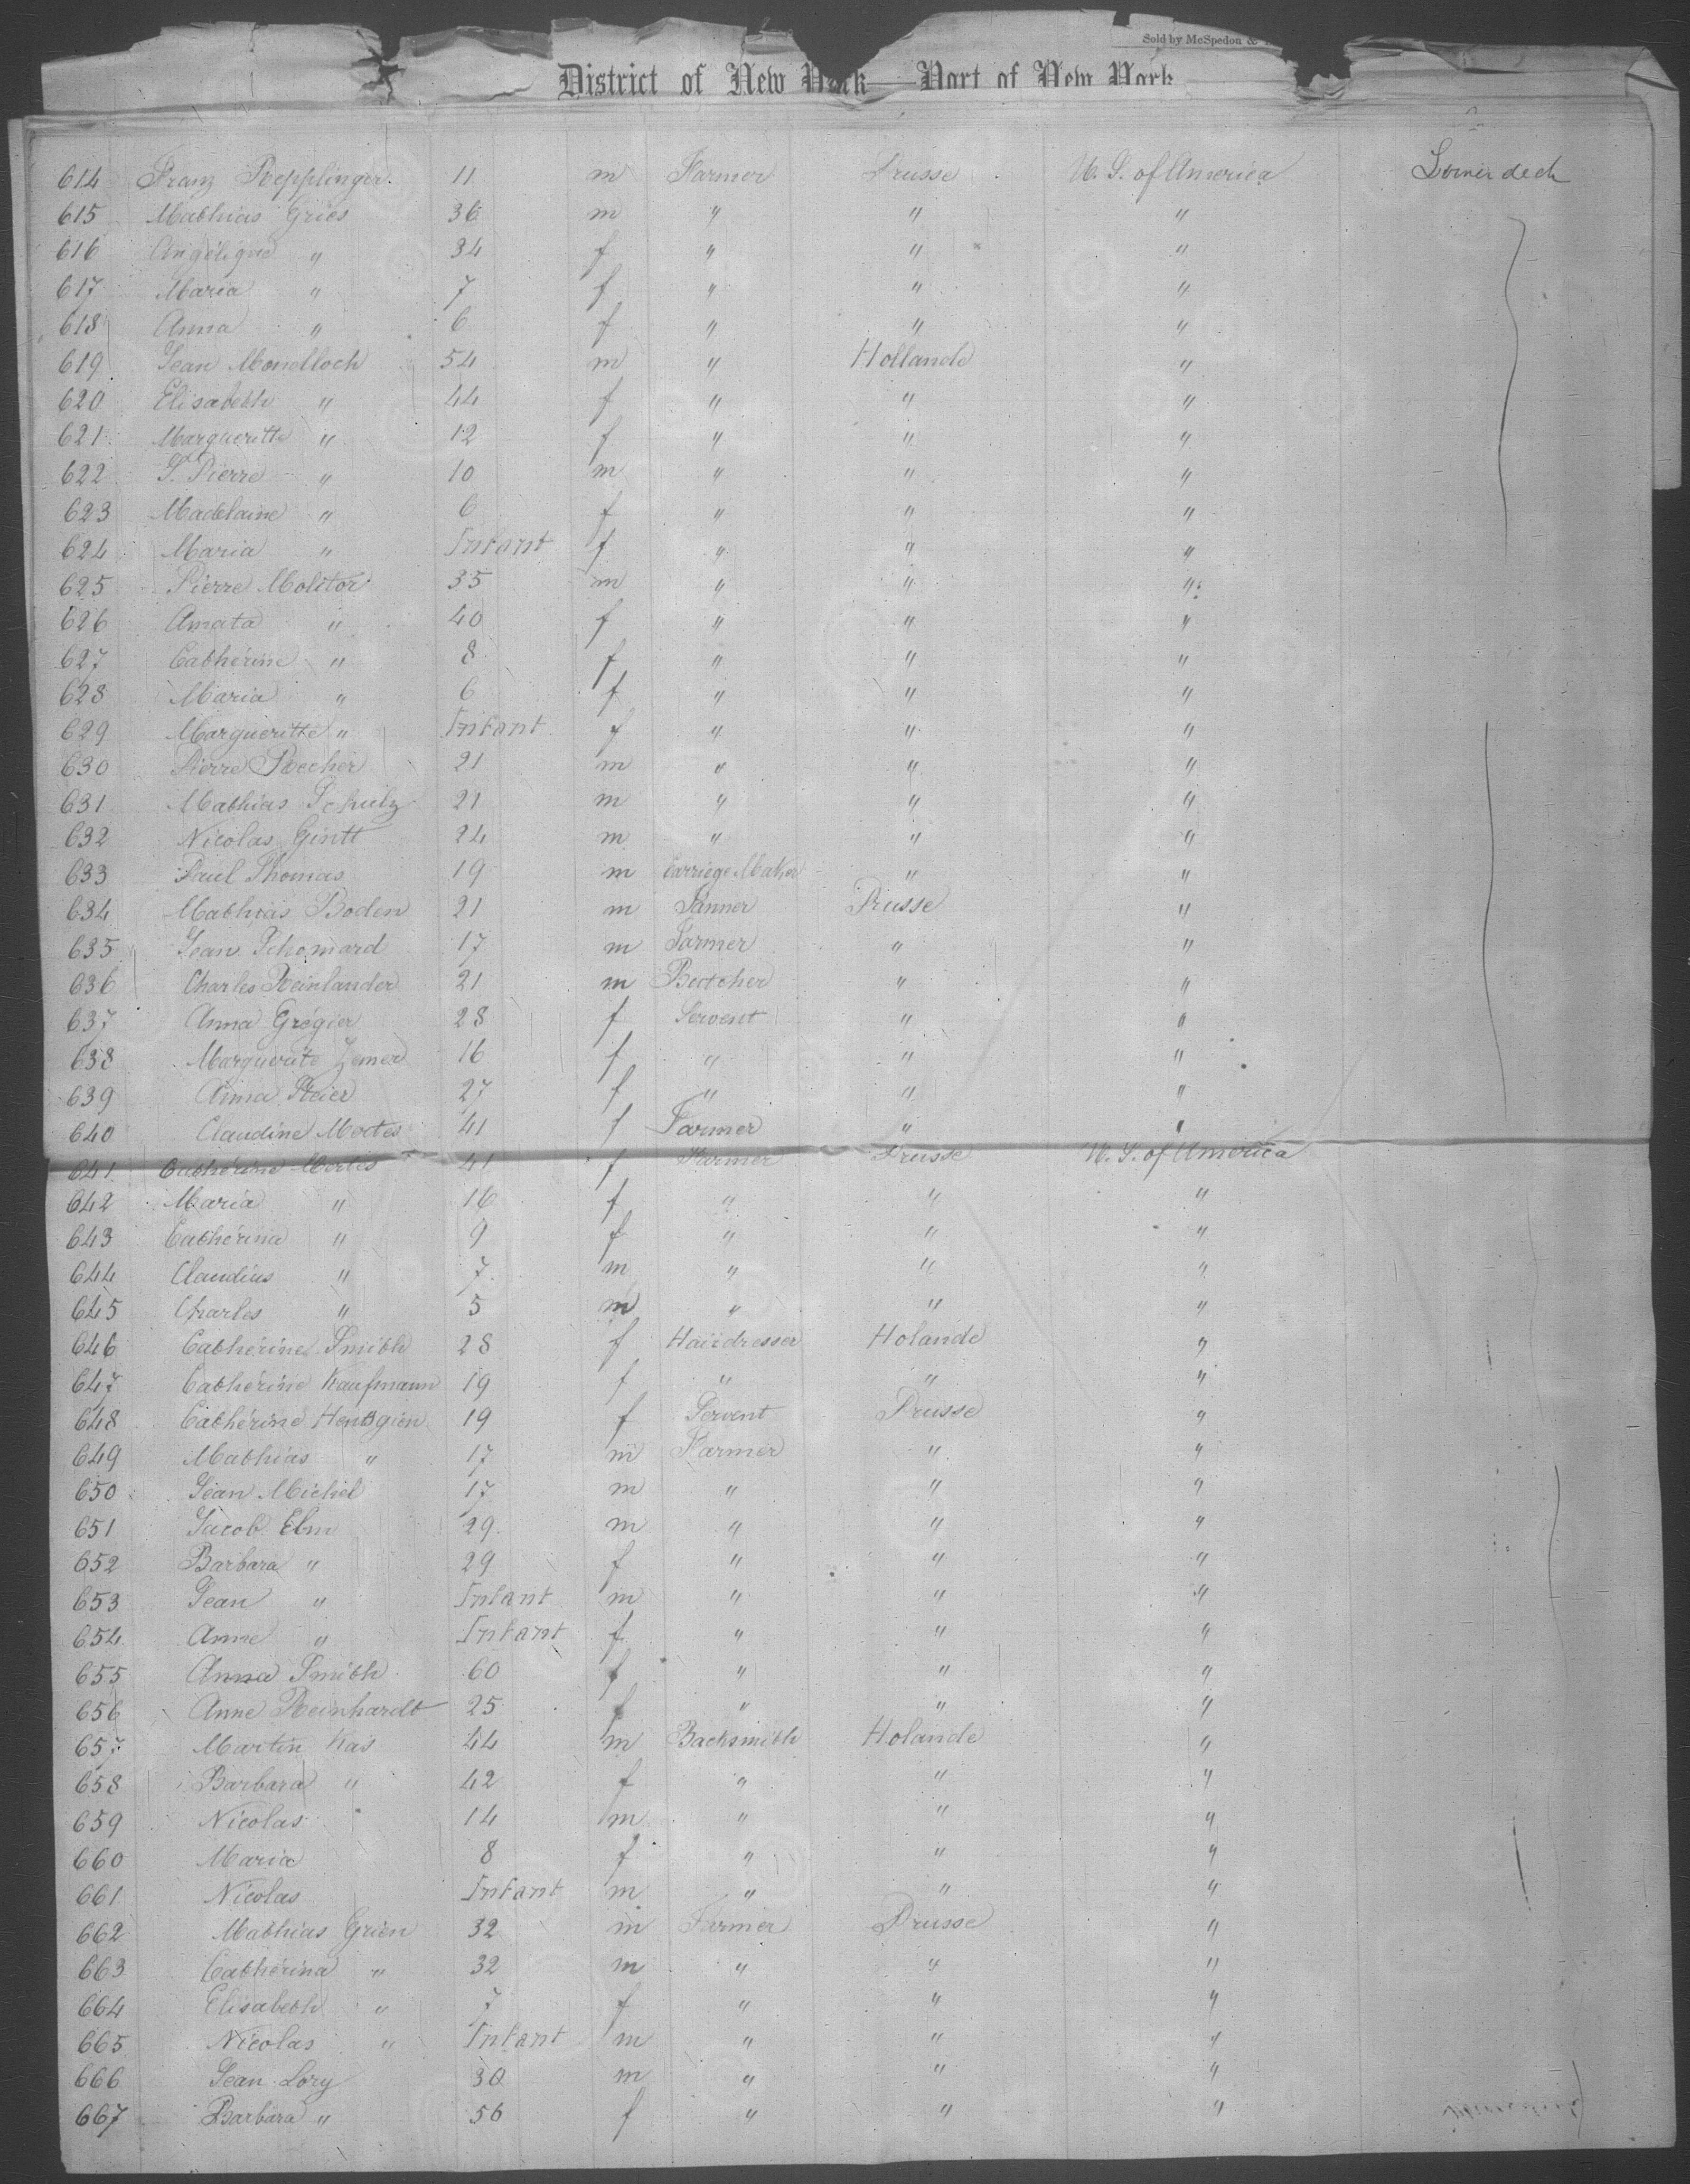 Sold by McSpedon &
District of New York—Port of New York
614 Franz Repplinger 11 m Farmer Prusse U. S. of America Lower deck
615 Mathias Gries 36 m " " "
616 Angélique " 34 f " " "
617 Maria " 7 f " " "
618 Anna " 6 f " " "
619 Jean Mondloch 54 m " Hollande "
620 Elisabeth " 44 f " " "
621 Margueritte " 12 f " " "
622 J. Pierre " 10 m " " "
623 Madelaine " 6 f " " "
624 Maria " Infant f " " "
625 Pierre Molitor 35 m " " "
626 Amata " 40 f " " "
627 Cathérine " 8 f " " "
628 Maria " 6 f " " "
629 Margueritte " Infant f " " "
630 Pierre Becher 21 m " " "
631 Mathias Schulz 21 m " " "
632 Nicolas Gintt 24 m " " "
633 Paul Thomas 19 m Carriege Maker " "
634 Mathias Boden 21 m Tanner Prusse "
635 Jean Schomard 17 m Farmer " "
636 Charles Reinlander 21 m Butcher " "
637 Anna Grégier 28 f Servent " "
638 Marguerite Zemer 16 f " " "
639 Anna Reier 27 f " " "
640 Claudine Mertes 41 f Farmer " "
641 Cathérine Mertes 41 f Farmer Prusse U. S. of America
642 Maria " 16 f " " "
643 Cathérina " 9 f " " "
644 Claudius " 7 m " " "
645 Charles " 5 m " " "
646 Cathérine Smith 28 f Hairdresser Holande "
647 Cathérine Kaufmann 19 f " " "
648 Cathérine Hentgien 19 f Servent Prusse "
649 Mathias " 17 m Farmer " "
650 Jean Michel 17 m " " "
651 Jacob Elm 29 m " " "
652 Barbara " 29 f " " "
653 Jean " Infant m " " "
654 Anne " Infant f " " "
655 Anna Smith 60 f " " "
656 Anne Reinhardt 25 f " " "
657 Martin Kas 44 m Backsmith Holande "
658 Barbara " 42 f " " "
659 Nicolas 14 m " " "
660 Maria 8 f " " "
661 Nicolas Infant m " " "
662 Mathias Grien 32 m Farmer Prusse "
663 Cathérina " 32 m " " "
664 Elisabeth " 7 f " " "
665 Nicolas " Infant m " " "
666 Jean Lory 30 m " " "
667 Barbara " 56 f " " "